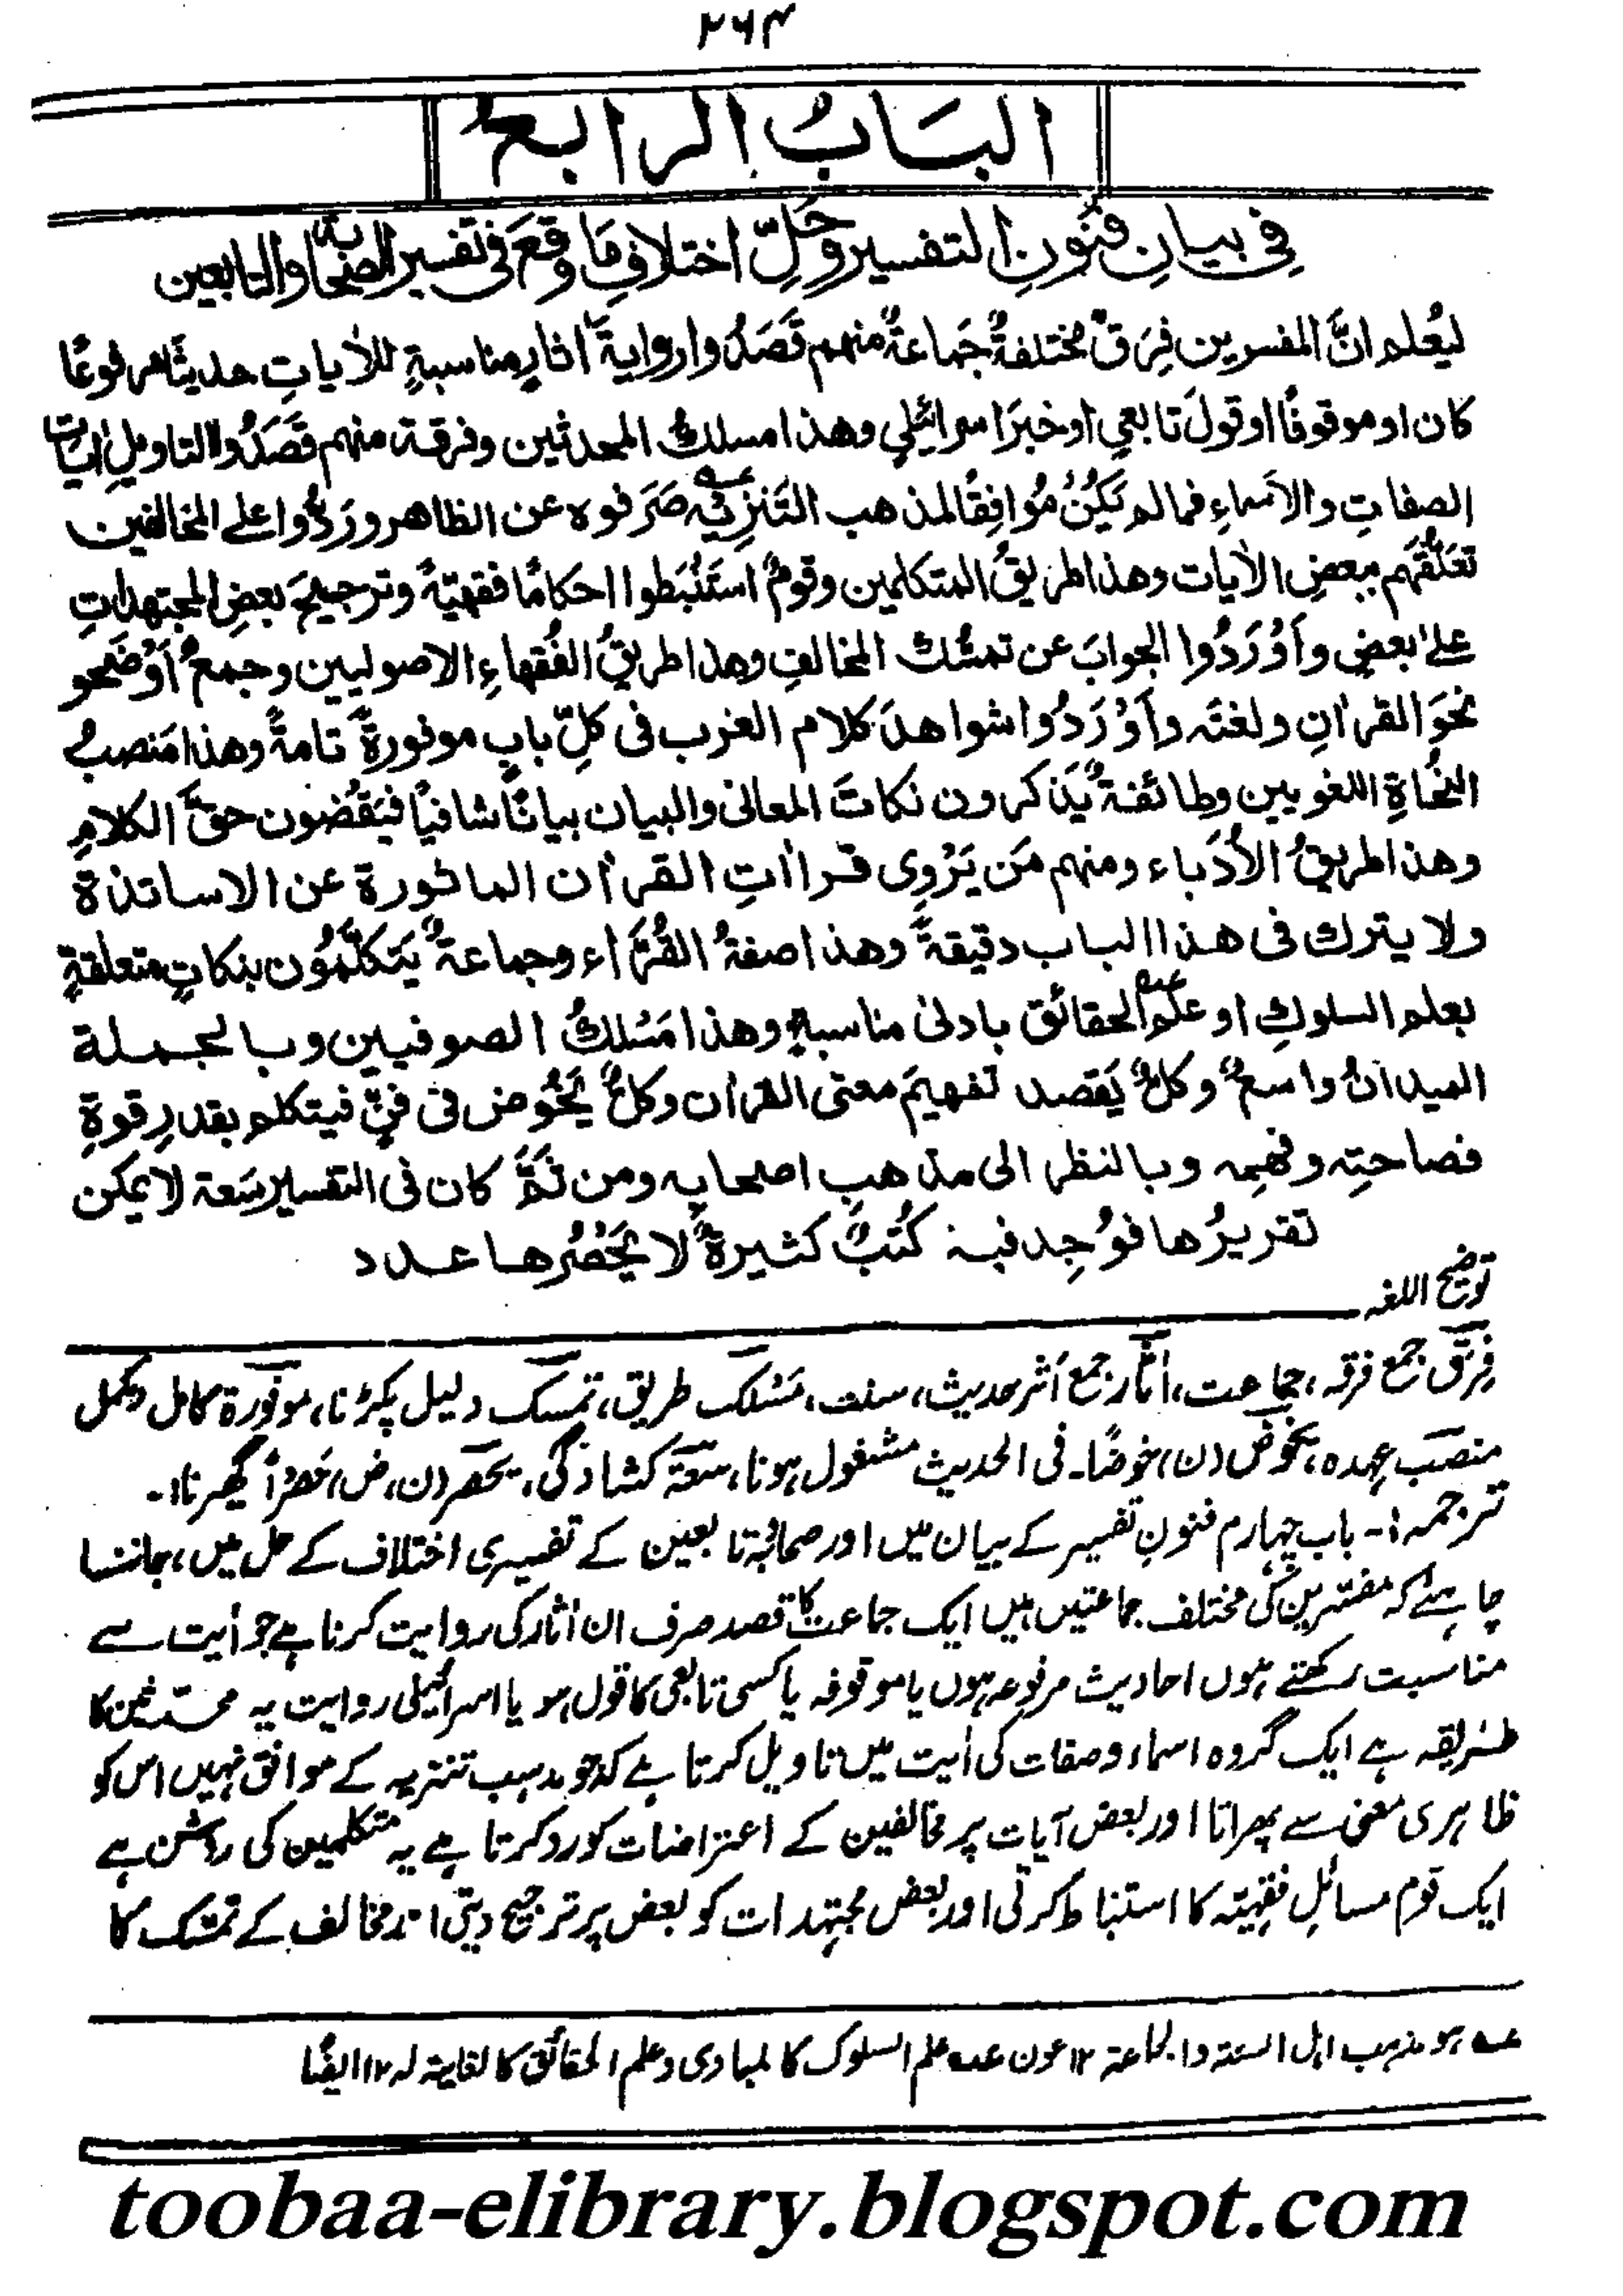 ۲۶۴
البَابُ الرابعُ
فِي بيانِ فنُونِ التفسير وحَلِّ اختلافِ مَا وقعَ فى تفسير الصحابة والتابعين
ليُعلم انَّ المفسرين فِرَقٌ مختلفةٌ جَماعةٌ منهم قَصَدُوا روايةَ اٰثارٍ مناسبةٍ للاٰياتِ حديثًا مرفوعًا
كان او موقوفًا او قولَ تابعي او خبرًا اسرائيلي وهذا مسلكُ المحدثين وفرقة منهم قَصَدُوا التاويل اٰيات
الصفاتِ والاَسماءِ فما لم يَكُنْ مُوافِقًا لمذهب التَنزِيْهِ عه صَرَفوه عن الظاهر ورَدُّوا على المخالفين
تعَلُّقَهم ببعضِ الاٰيات وهذا طريقُ المتكلمين وقومٌ استَنْبَطوا احكامًا فقهيّةً وترجيحَ بعضِ المجتهداتِ
علىٰ بعضٍ واَوْرَدُوا الجوابَ عن تمسُّك المخالفِ وهذا طريقُ الفُقهاءِ الاصوليين وجمعٌ اَوْضَحو
نحوَ القراٰنِ ولغتَه واَوْرَدُوا شواهدَ كلام العرب فى كلِّ بابٍ موفورةً تامةً وهذا مَنصبُ
النُّحاةِ اللغويين وطائفةٌ يَذكرون نكاتَ المعانى والبيان بيانًا شافيًا فيَقْضُون حقَّ الكلامِ
وهذا طريقُ الاُدَباء ومنهم مَن يَرْوِى قراٰاتِ القراٰن الماثورة عن الاساتذة
ولا يترك فى هذا الباب دقيقةً وهذا صفةُ القُرَّاء وجماعةٌ يَتَكلَّمُون بنكاتٍ متعلقةٍ
بعلم السلوكِ او علمِ عه الحقائق بادنىٰ مناسبةٍ وهذا مَسْلكُ الصوفيين وبالجملة
الميدانُ واسعٌ وكلٌّ يَقصد تفهيمَ معنى القراٰن وكلٌّ يَخُوض فى فنٍّ فيتكلم بقدرِ قوةِ
فصاحتِه وفهمِه وبالنظر الى مذهبِ اصحابِه ومن ثَمَّ كان فى التفسير سَعة لا يمكن
تقريرُها فوُجِد فيه كُتبٌ كثيرةٌ لا يَحْصُرها عدد
توضیح اللغہ
فِرَق جمع فرقہ، جماعت، اٰثار جمع اَثر حدیث، سنت، مَسْلک طریق، تمسک دلیل پکڑنا، موفورة کامل ومکمل
منصب عہدہ، یخوض (ن) خوضًا۔ فی الحدیث مشغول ہونا، سَعَة کشادگی، یحصر (ن، ض) حَصْرًا گھیرنا:۔
ترجمہ:۔ باب چہارم فنونِ تفسیر کے بیان میں اور صحابہؓ تابعین کے تفسیری اختلاف کے حل میں، جاننا
چاہئے کہ مفسّرین کی مختلف جماعتیں ہیں ایک جماعت کا قصد صرف ان اٰثار کی روایت کرنا ہے جو اٰیت سے
مناسبت رکھتے ہوں احادیث مرفوعہ ہوں یا موقوفہ یا کسی تابعی کا قول ہو یا اسرائیلی روایت یہ محدثین کا
طریقہ ہے ایک گروہ اسماء وصفات کی اٰیت میں تاویل کرتا ہے کہ جو مذہب تنزیہ کے موافق نہیں اس کو
ظاہری معنی سے پھراتا اور بعض آیات پر مخالفین کے اعتراضات کو رد کرتا ہے یہ متکلمین کی روش ہے
ایک قوم مسائلِ فقہیّہ کا استنباط کرتی اور بعض مجتہدات کو بعض پر ترجیح دیتی اور مخالف کے تمسّک کا
عہ ہو مذہب اہل السنۃ والجماعۃ ۱۲ عون عہ علم السلوک کالمبادی وعلم الحقائق کالغایۃ لہ ۱۲ ایضًا
toobaa-elibrary.blogspot.com